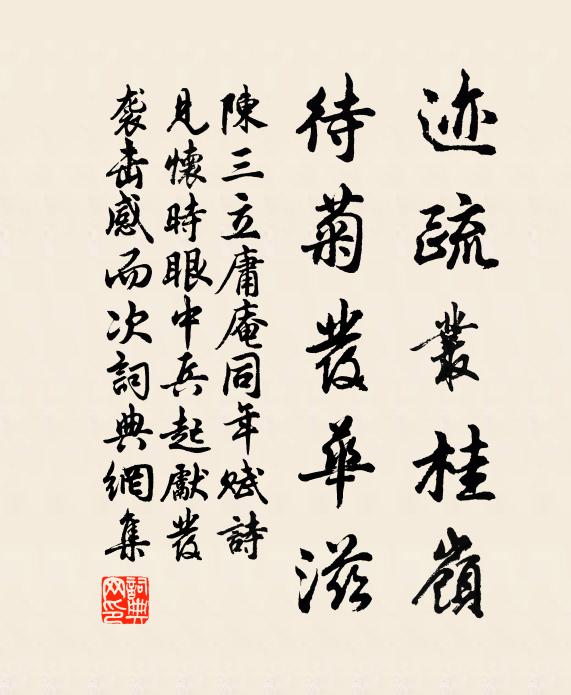 迹疏叢桂嶺
待菊發華滋
陳三立庸庵同年賦詩
見懷時眼中兵起獻發
袭击感而次詞典網集
詞典网印